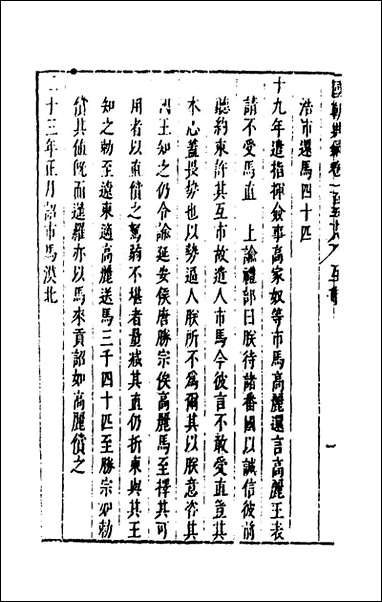 國朝典彙卷一百五十八 互市 一
浩市還馬四十匹
十九年遣指揮僉事高家奴等市馬高麗還言高麗王表
請不受馬直 上諭禮部曰朕待諸番國以誠信彼前
聽約束許其互市故遣人市馬今彼言不敢受直豈其
本心蓋畏勢也以勢逼人朕所不爲爾其以朕意咨其
王知之仍令諭延安侯唐勝宗俟高麗馬至擇其可
用者以直償之駑弱不堪者量减其直仍折柬與其王
知之勑至遼東適高麗送馬三千四十匹至勝宗如勑
償其值旣而暹羅亦以馬來貢詔如高麗償之
二十三年正月詔市馬漠北